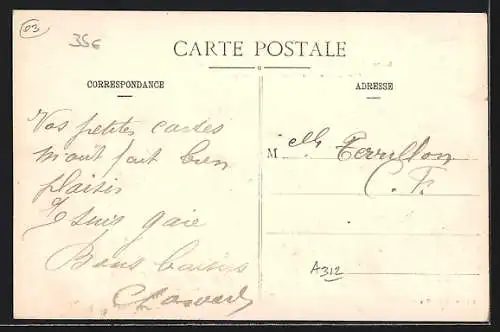 03
35€
CARTE POSTALE
CORRESPONDANCE
ADRESSE
Vos petites cartes
m'ont fait bien
plaisir
suis gaie
Bons baisers
M elle Terrillon
C. F.
A312